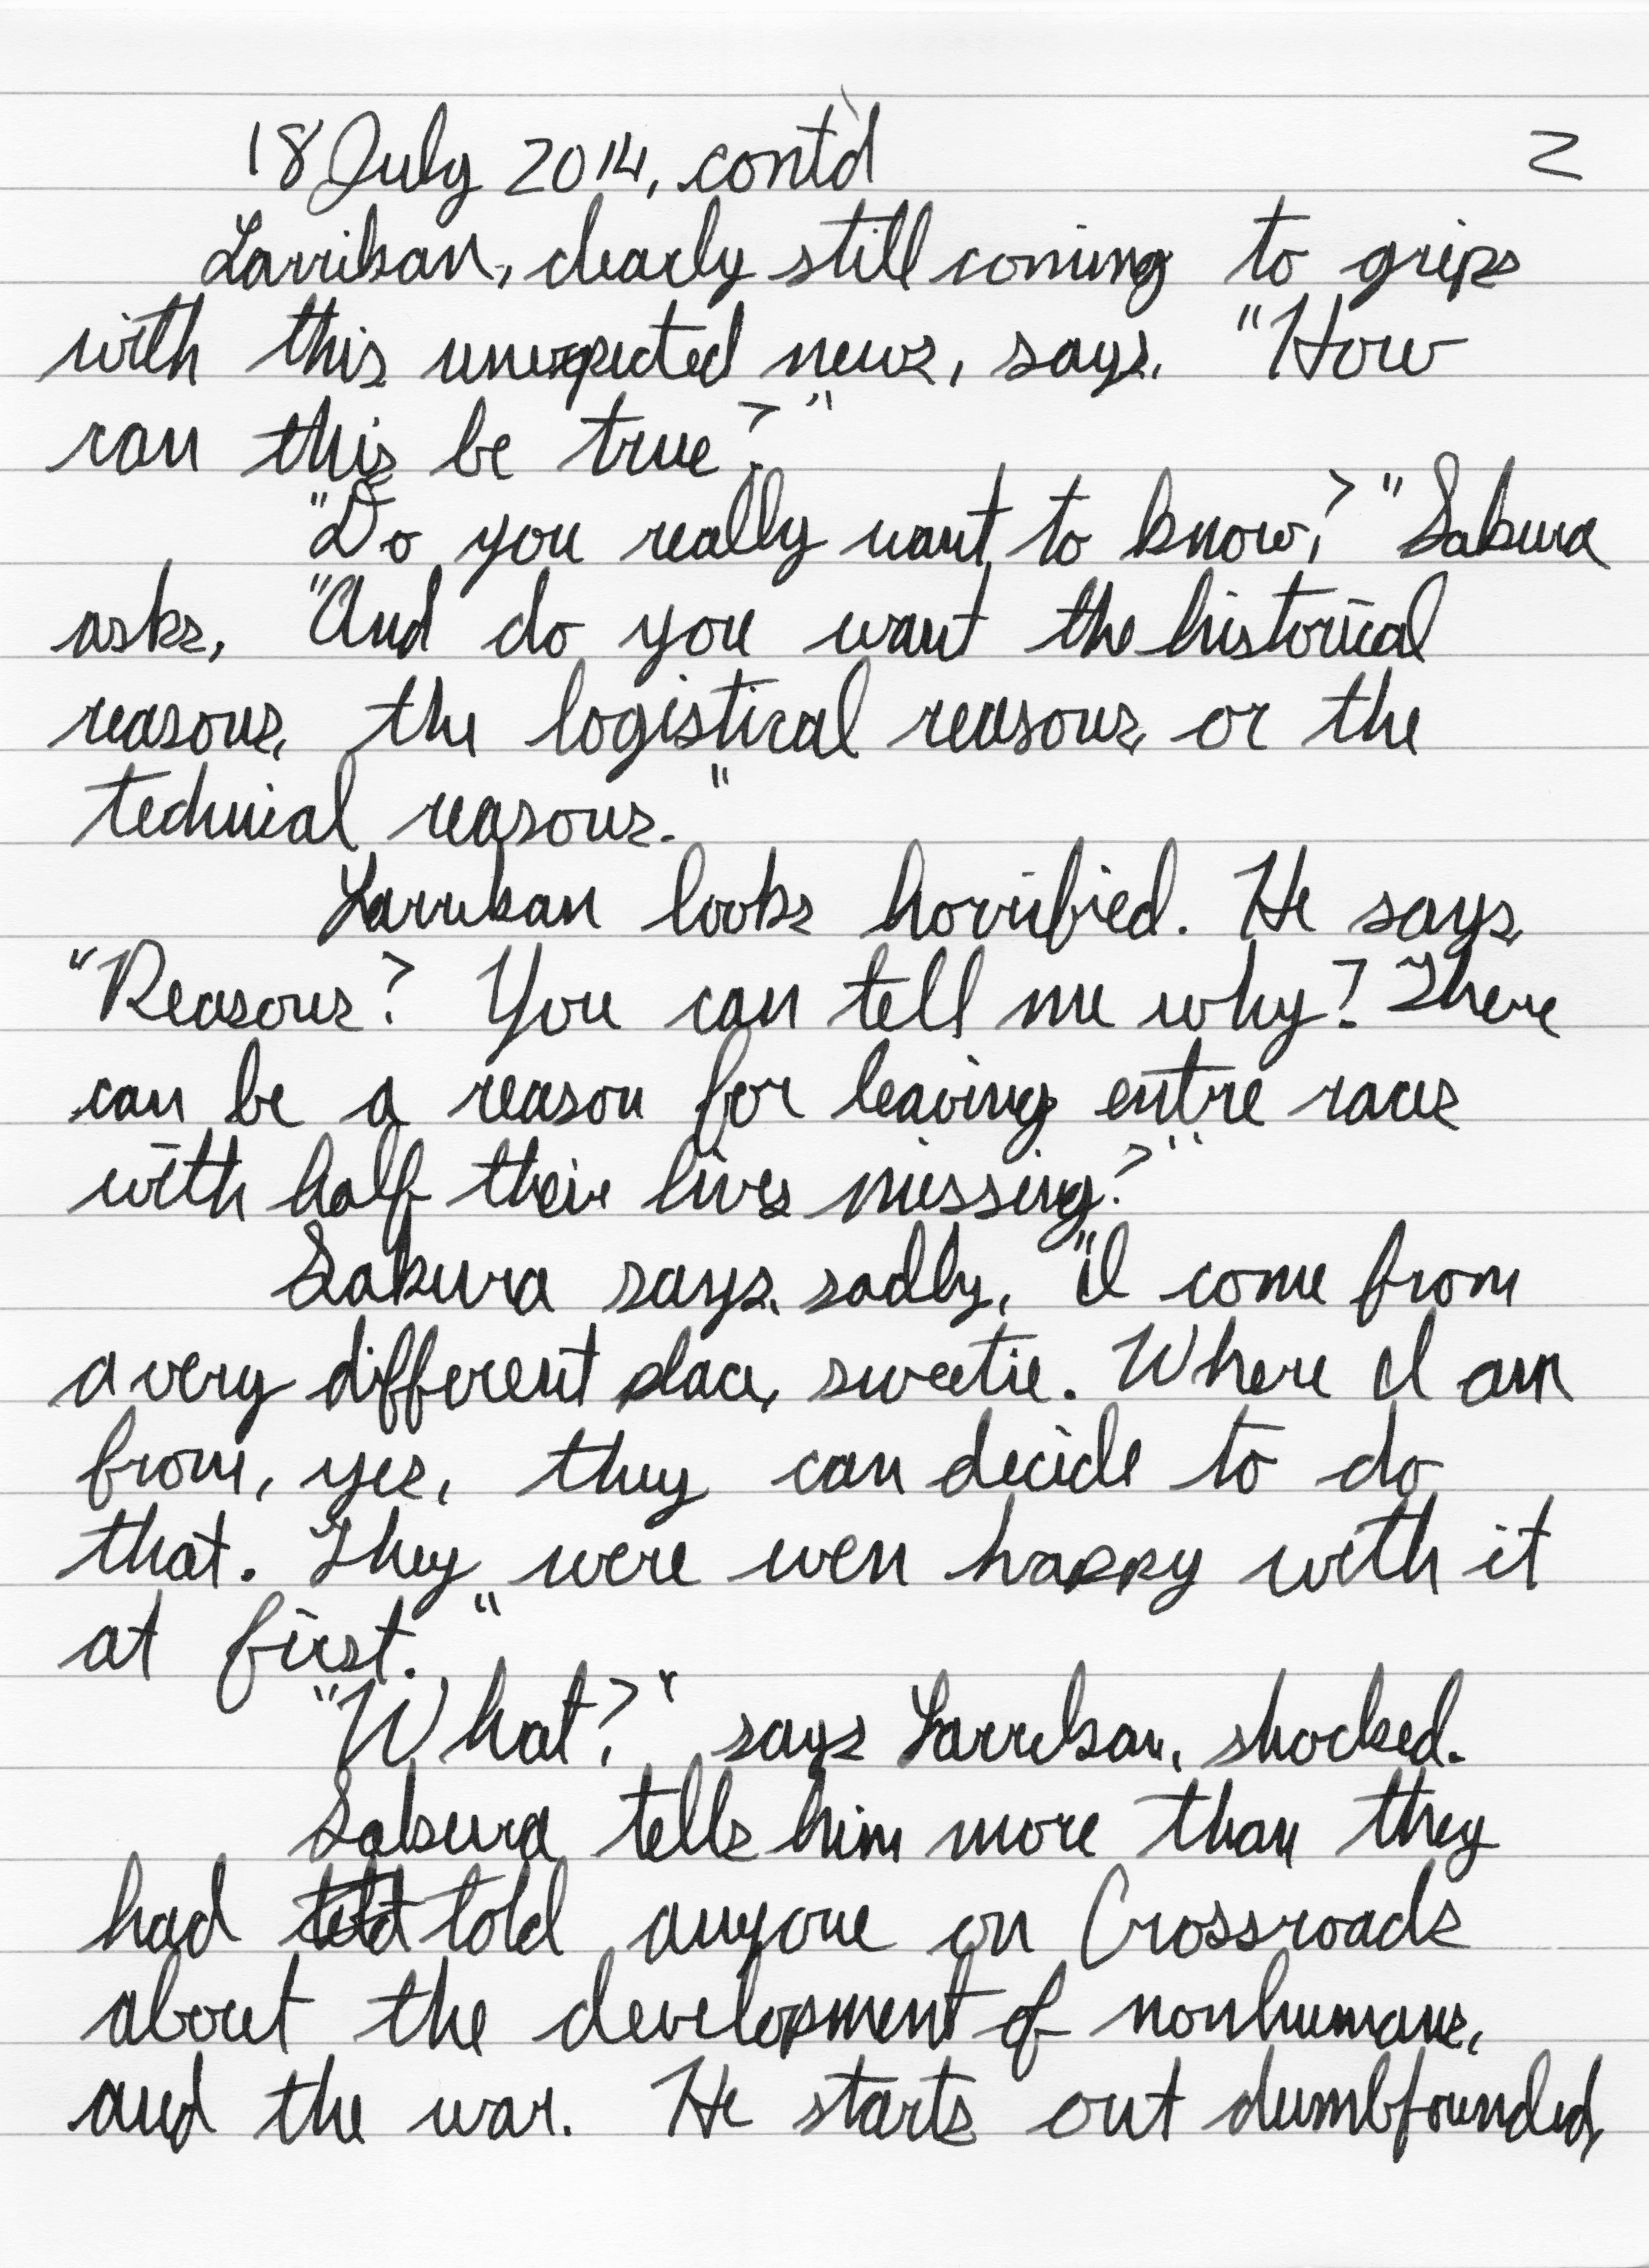 18 July 2014, cont'd 2
Larrikan, clearly still coming to grips
with this unexpected news, says, "How
can this be true?"
"Do you really want to know?" Sakura
asks, "And do you want the historical
reasons, the logistical reasons, or the
technical reasons."
Larrikan looks horrified. He says,
"Reasons? You can tell me why? There
can be a reason for leaving entire races
with half their lives missing?"
Sakura says, sadly, "I come from
a very different place, sweetie. Where I am
from, yes, they can decide to do
that. They were even happy with it
at first."
"What?" says Larrikan, shocked.
Sakura tells him more than they
had told told anyone on Crossroads
about the development of nonhumans,
and the war. He starts out dumbfounded,